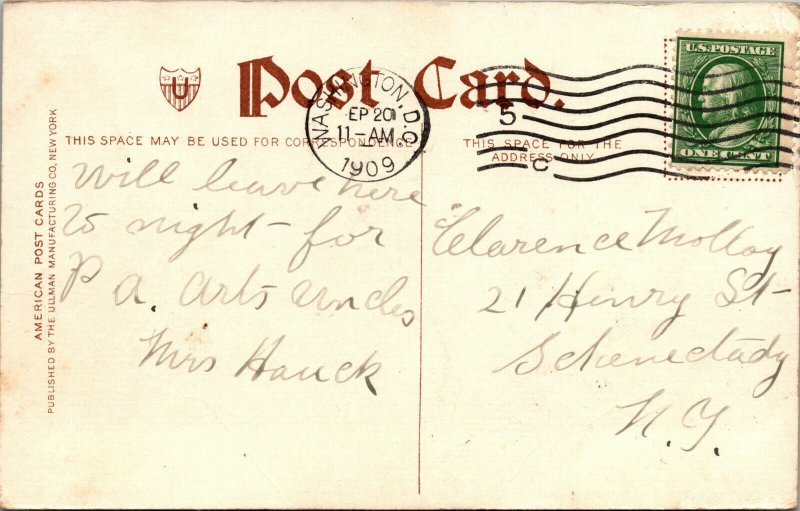 U
Post Card.
WASHINGTON, D.C.
SEP 20
11-AM
1909
5
C
U.S. POSTAGE
ONE CENT
THIS SPACE MAY BE USED FOR CORRESPONDENCE
THIS SPACE FOR THE
ADDRESS ONLY
AMERICAN POST CARDS
PUBLISHED BY THE ULLMAN MANUFACTURING CO, NEW YORK
Will leave here
to night - for
Pa. Arts Uncles
Mrs Hauck
Clarence Molloy
21 Henry St-
Schenectady
N.Y.